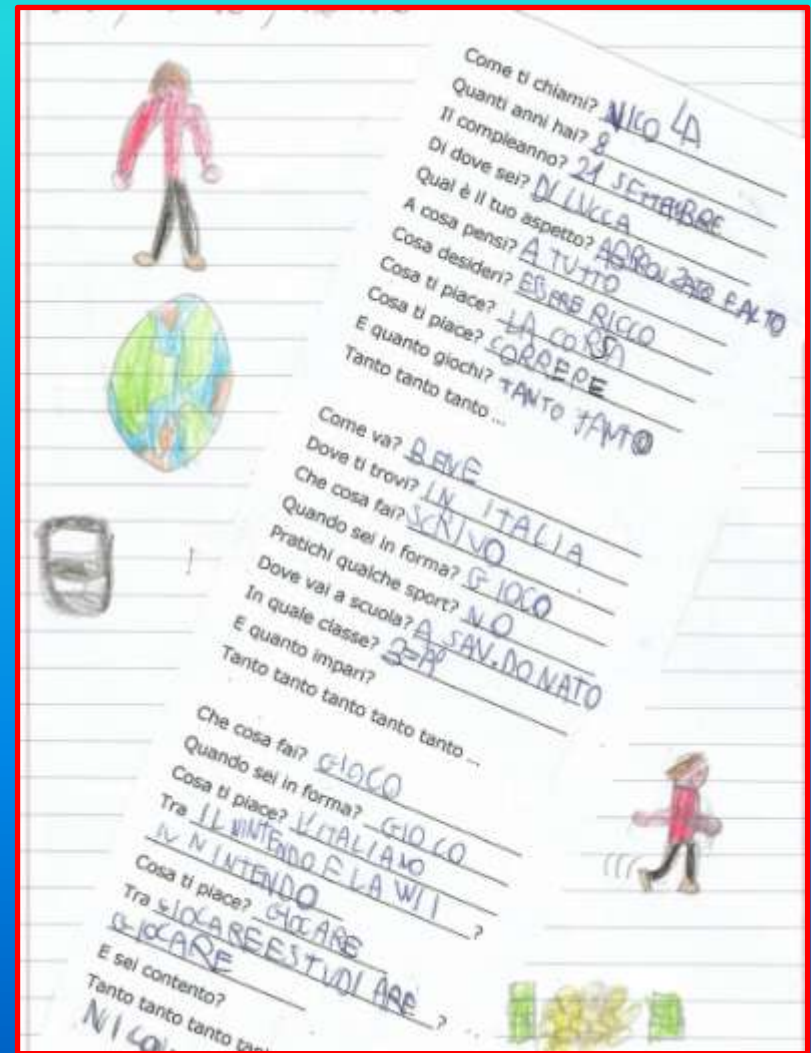 Come ti chiami? NICOLA
Quanti anni hai? 8
Il compleanno? 21 SETTEMBRE
Di dove sei? DI LUCCA
Qual è il tuo aspetto? ABBRONZATO E ALTO
A cosa pensi? A TUTTO
Cosa desideri? ESSERE RICCO
Cosa ti piace? LA CORSA
Cosa ti piace? CORRERE
E quanto giochi? TANTO TANTO
Tanto tanto tanto ...
Come va? BENE
Dove ti trovi? IN ITALIA
Che cosa fai? SCRIVO
Quando sei in forma? GIOCO
Pratichi qualche sport? NO
Dove vai a scuola? A SAN.DONATO
In quale classe?
E quanto impari?
Tanto tanto tanto tanto tanto ...
Che cosa fai? GIOCO
Quando sei in forma? GIOCO
Cosa ti piace? L'ITALIANO
Tra IL NINTENDO E LA WII ?
IL NINTENDO
Cosa ti piace? GIOCARE
Tra GIOCARE E STUDIARE ?
GIOCARE
E sei contento?
Tanto tanto tanto